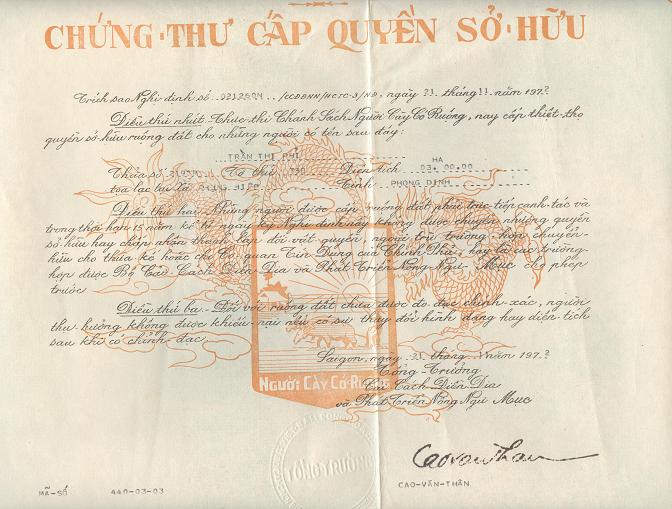 CHỨNG-THƯ CẤP QUYỀN SỞ-HỮU
Trích sao Nghị-định số 0212504 /CCĐĐNN/HCTC-3/NĐ, ngày tháng 11 năm 197
Điều thứ nhứt.- Thực-thi Chánh Sách Người Cày Có Ruộng, nay cấp thiệt-thọ
quyền sở-hữu ruộng đất cho những người có tên sau đây:
TRẦN THỊ PHI
HA
Thửa số Tờ thứ 730 Diện tích 03.00.00
tọa lạc tại Xã HIỆP Tỉnh PHONG DINH
Điều thứ hai.- Những người được cấp ruộng đất phải trực tiếp canh-tác và
trong thời hạn 15 năm kể từ ngày ký Nghị định này không được chuyển nhượng quyền
sở hữu hay chấp nhận thành lập đối vật quyền, ngoại trừ trường hợp chuyển-
hữu cho thừa kế hoặc cho Cơ quan Tín Dụng của Chánh Phủ, hay là các trường-
hợp được Bộ Cải Cách Điền Địa và Phát Triển Nông Ngư Mục cho phép
trước.
Điều thứ ba.- Đối với ruộng đất chưa được đo đạc chính xác, người
thụ hưởng không được khiếu-nại nếu có sự thay đổi hình dạng hay diện tích
sau khi có chỉnh đạc.
Saigon, ngày tháng năm 197
Tổng-Trưởng
Cải Cách Điền Địa
và Phát Triển Nông Ngư Mục
NGƯỜI CÀY CÓ RUỘNG
TỔNG TRƯỞNG
Cao văn Thân
MÃ-SỐ 440-03-03
CAO-VĂN-THÂN